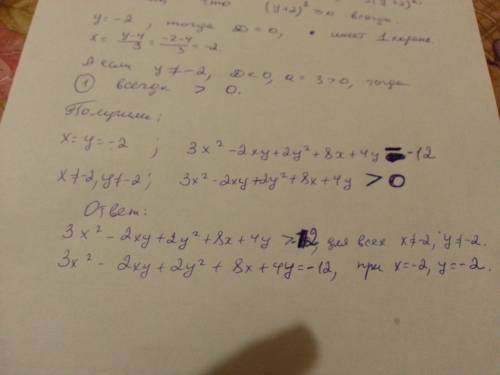 что (y+2)² ≥ 0 всегда
y=-2, тогда D=0, имеет 1 корень
x = (y-4)/3 = (-2-4)/3 = -2.
А если y≠-2, D<0, a=3>0, тогда
① всегда > 0.
Получили:
x=y=-2 ; 3x²-2xy+2y²+8x+4y = -12
x≠-2, y≠-2; 3x²-2xy+2y²+8x+4y > 0
Ответ:
3x²-2xy+2y²+8x+4y >-12, для всех x≠-2, y≠-2.
3x²- 2xy+2y²+8x+4y=-12, при x=-2, y=-2.